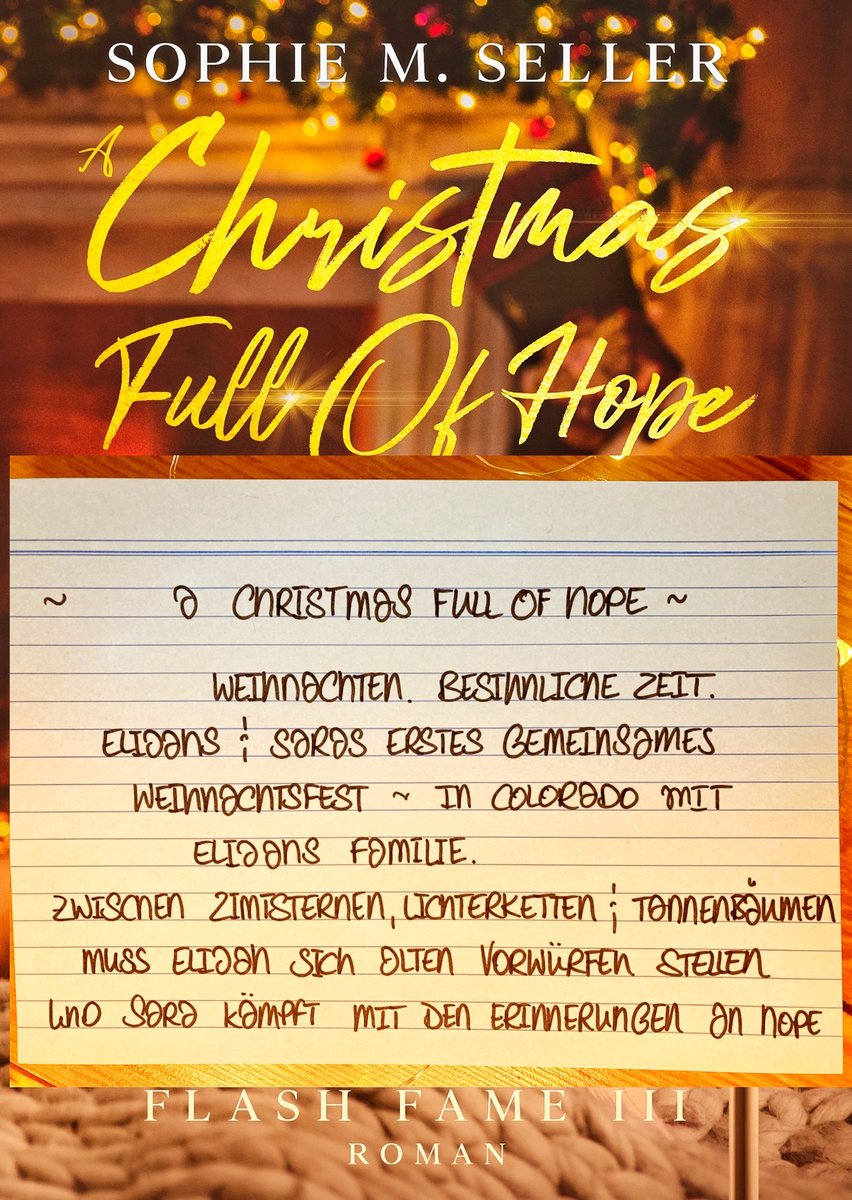 SOPHIE M. SELLER
A
Christmas
Full Of Hope
~ A CHRISTMAS FULL OF HOPE ~
WEIHNACHTEN. BESINNLICHE ZEIT.
ELIJAHS & SARAS ERSTES GEMEINSAMES
WEIHNACHTSFEST ~ IN COLORADO MIT
ELIJAHS FAMILIE.
ZWISCHEN ZIMTSTERNEN, LICHTERKETTEN & TANNENBÄUMEN
MUSS ELIJAH SICH ALTEN VORWÜRFEN STELLEN
UND SARA KÄMPFT MIT DEN ERINNERUNGEN AN HOPE
FLASH FAME III
ROMAN